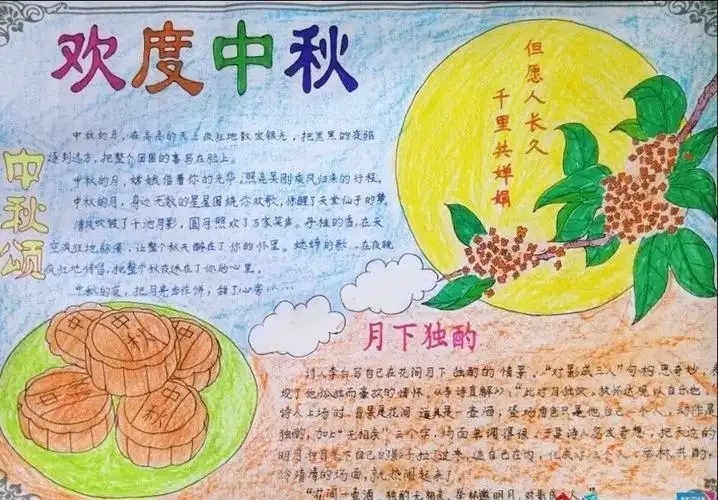 欢度中秋
但愿人长久
千里共婵娟
中秋颂
中秋的月,在高高的天上疯狂地散发银光,把黑黑的夜驱
逐到远方,把整个团圆的喜写在脸上。
中秋的月,嫦娥借着你的光华,照亮吴刚疾风归来的行程。
中秋的月,身边无数的星星围绕你欢歌,惊醒了天堂仙子的梦,
清风吹皱了千池月影,圆月照欢了万家笑声。丹桂的香,在天
空疯狂地弥漫,让整个秋天醉在了你的怀里。蟋蟀的歌,在夜晚
疯狂地传唱,把整个秋夜迷在了你的心里。
中秋的夜,把月亮当作饼,甜了心房……
中秋
中秋
中秋
中秋
月下独酌
诗人李白写自己在花间月下独酌的情景。“对影成三人”句构思奇妙,表
现了他孤独而豪放的情怀。《李诗直解》:“此对月独饮,放怀达观以自乐也。
诗人上场时,背景是花间,道具是一壶酒,登场角色只是他自己一个人,动作是
独酌,加上“无相亲”三个字,场面单调得很。于是诗人忽发奇想,把天边的
明月和月光下自己的影子拉了过来,连自己在内,化成了三个人,举杯共酌,
冷清清的场面,就热闹起来了
“花间一壶酒,独酌无相亲。举杯邀明月,对影成三人。”